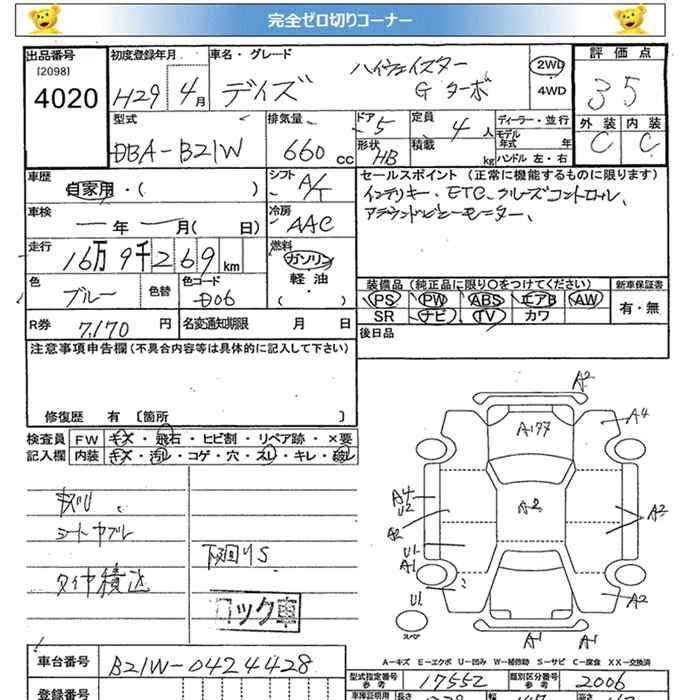 完全ゼロ切りコーナー
出品番号 初度登録年月 車名・グレード 評価点
[2098]
4020
H29 4月 デイズ ハイウェイスター
Gターボ
2WD
4WD
3 5
型式 排気量 ドア 定員 ディーラー・並行 外装 内装
DBA-B21W 660cc 5 4人
モデル年式 年
形状 HB 積載 kg ハンドル 左・右
C C
車歴 シフト セールスポイント (正常に機能するものに限ります)
自家用・( ) A/T
インテリキー、ETC、クルーズコントロール、
アラウンドビューモニター、
車検 冷房
ー年 ー月( 日) AAC
走行 燃料
16万9千269km ガソリン
軽油
( )
色 色替 色コード
ブルー D06
装備品 (純正品に限り〇をつけてください) 新車保証書
PS PW ABS エアB AW 有・無
SR ナビ TV カワ
R券 7,170円 名変通知期限 月 日
後日品
注意事項申告欄(不具合内容等は具体的に記入して下さい)
修復歴 有 [箇所 ]
検査員 FW キズ・飛石・ヒビ割・リペア跡・×要
記入欄 内装 キズ・汚レ・コゲ・穴・スレ・キレ・破レ
シートヤブレ
タイヤ積込
下廻りS
ロック車
A2
A4
A177
A4
U2
A2
A2
A2
U1
A1
U1
A2
スペア
A1 A1
A-キズ E-エクボ U-凹み W-補修跡 S-サビ C-腐食 XX-交換済
車台番号 B21W-0424428
型式指定番号 参考 17552 類別区分番号 参考 2006
登録番号
車庫証明用 長さ 幅 高さ